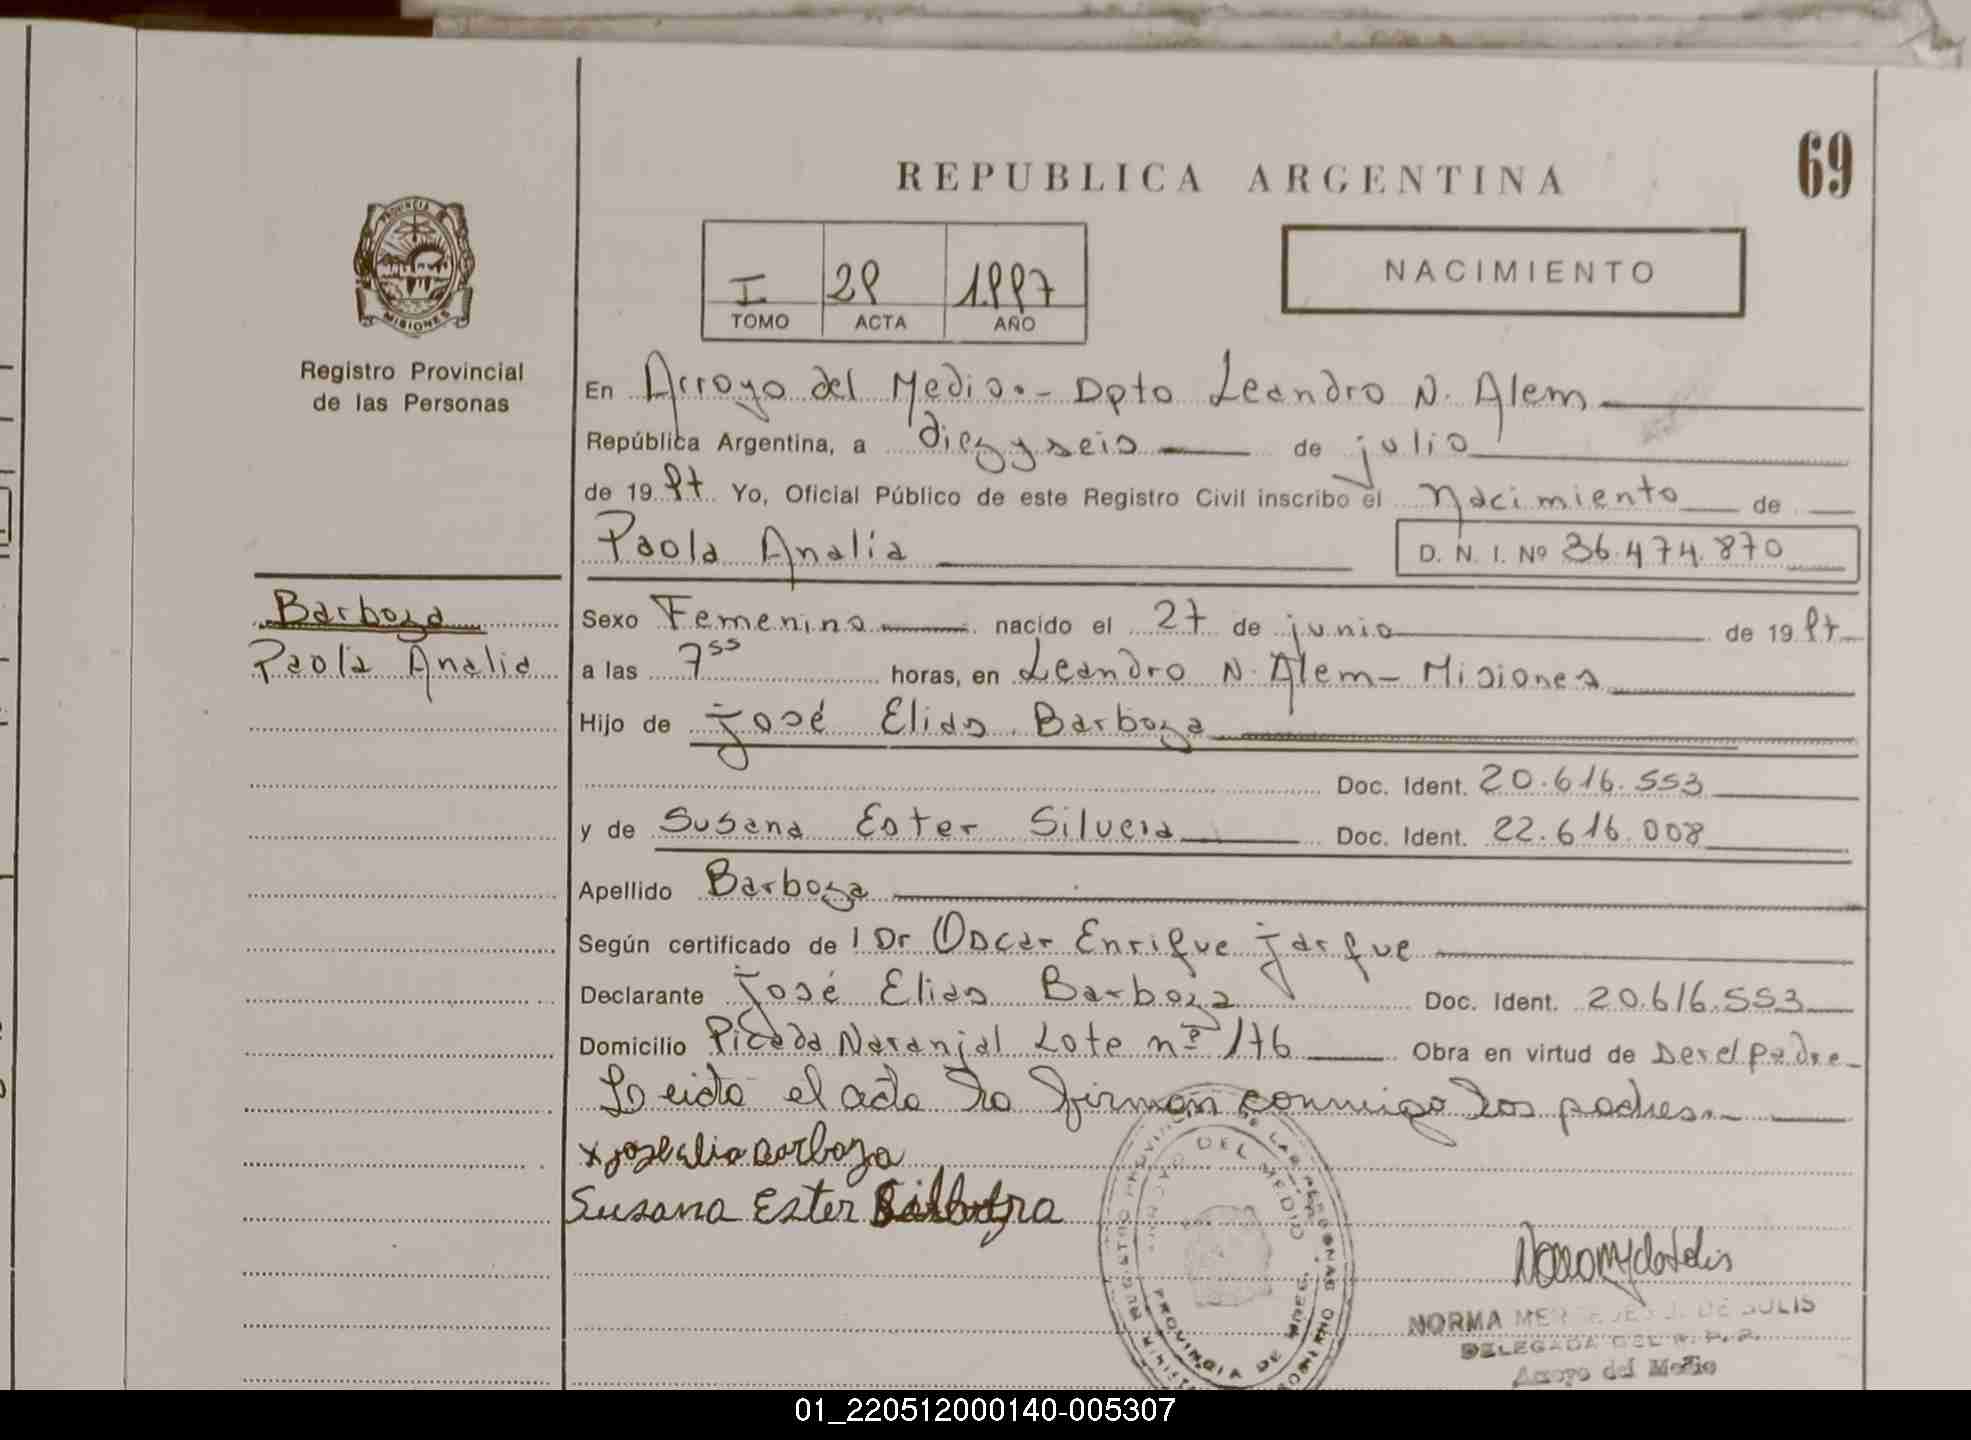 69
REPUBLICA ARGENTINA
PROVINCIA DE
MISIONES
Registro Provincial
de las Personas
I 29 1.997
TOMO ACTA AÑO
NACIMIENTO
En Arroyo del Medio.- Dpto Leandro N. Alem
República Argentina, a diez y seis de julio
de 19 97 Yo, Oficial Público de este Registro Civil inscribo el nacimiento de
Paola Analia D. N. I. Nº 36.474.870
Barboza
Paola Analia
Sexo Femenino nacido el 27 de junio de 19 97
a las 7 55 horas, en Leandro N. Alem - Misiones
Hijo de José Elias Barboza
Doc. Ident. 20.616.553
y de Susana Ester Silveira Doc. Ident. 22.616.008
Apellido Barboza
Según certificado de l Dr Oscar Enrique Jarque
Declarante José Elias Barboza Doc. Ident. 20.616.553
Domicilio Picada Naranjal Lote nº 176 Obra en virtud de Ser el padre
Leida el acta la firman conmigo los padres.-
x jose elia Barboza
Susana Ester
REGISTRO PROVINCIAL DE LAS PERSONAS
ARROYO DEL MEDIO
PROVINCIA DE MNES.
NORMA MERCEDES J. DE SOLIS
DELEGADA DEL R. P. P.
Arroyo del Medio
01_220512000140-005307